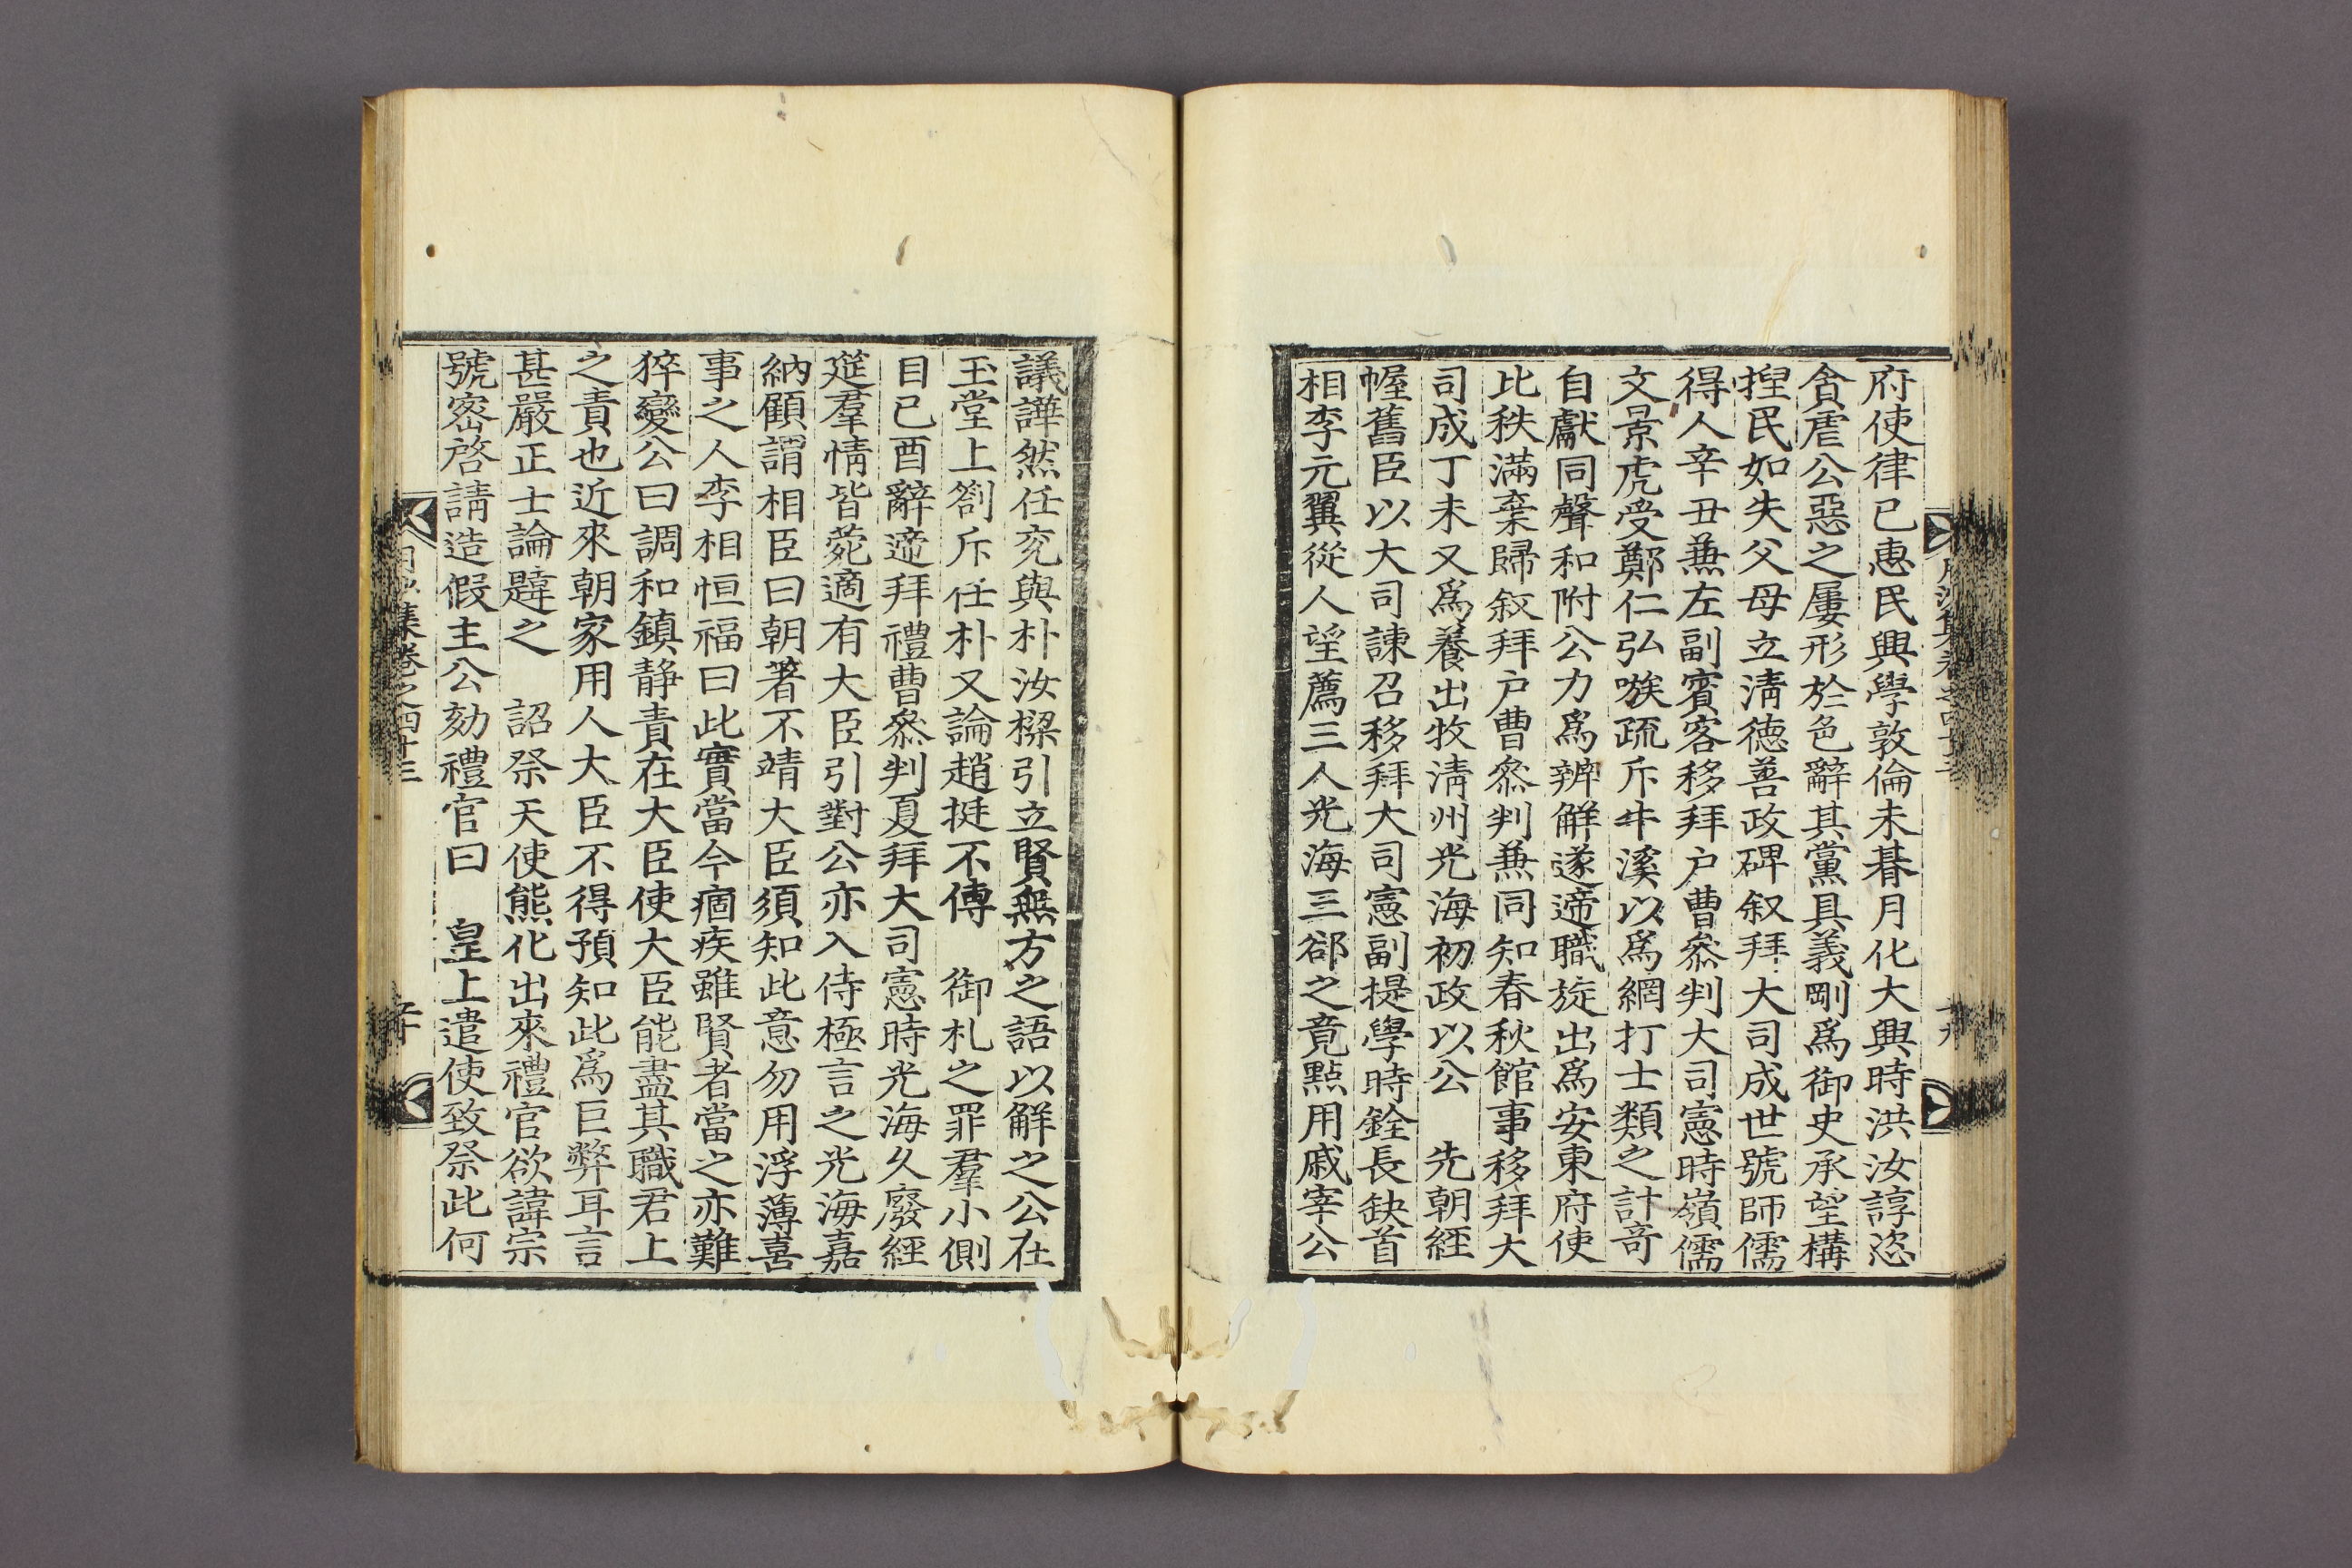 府使律己惠民興學敦倫未朞月化大興時洪汝諄恣
貪虐公惡之屢形於色辭其黨具義剛爲御史承望構
捏民如失父母立淸德善政碑叙拜大司成世號師儒
得人辛丑兼左副賓客移拜戶曹叅判大司憲時嶺儒
文景虎受鄭仁弘嗾疏斥牛溪以爲網打士類之計奇
自獻同聲和附公力爲辨解遂遞職旋出爲安東府使
比秩滿棄歸叙拜戶曹叅判兼同知春秋館事移拜大
司成丁未又爲養出牧淸州光海初政以公　先朝經
幄舊臣以大司諫召移拜大司憲副提學時銓長缺首
相李元翼從人望薦三人光海三郤之竟點用戚宰公
議譁然任兖與朴汝樑引立賢無方之語以解之公在
玉堂上劄斥任朴又論趙挺不傳　御札之罪羣小側
目己酉辭遞拜禮曹叅判夏拜大司憲時光海久廢經
筵羣情皆菀適有大臣引對公亦入侍極言之光海嘉
納顧謂相臣曰朝著不靖大臣須知此意勿用浮薄喜
事之人李相恒福曰此實當今痼疾雖賢者當之亦難
猝變公曰調和鎭靜責在大臣使大臣能盡其職君上
之責也近來朝家用人大臣不得預知此爲巨弊耳言
甚嚴正士論韙之　詔祭天使熊化出來禮官欲諱宗
號密啓請造假主公劾禮官曰　皇上遣使致祭此何
集卷之四十三